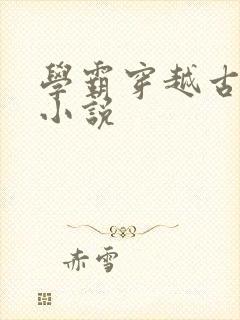 學霸穿越古
小說
赤雪